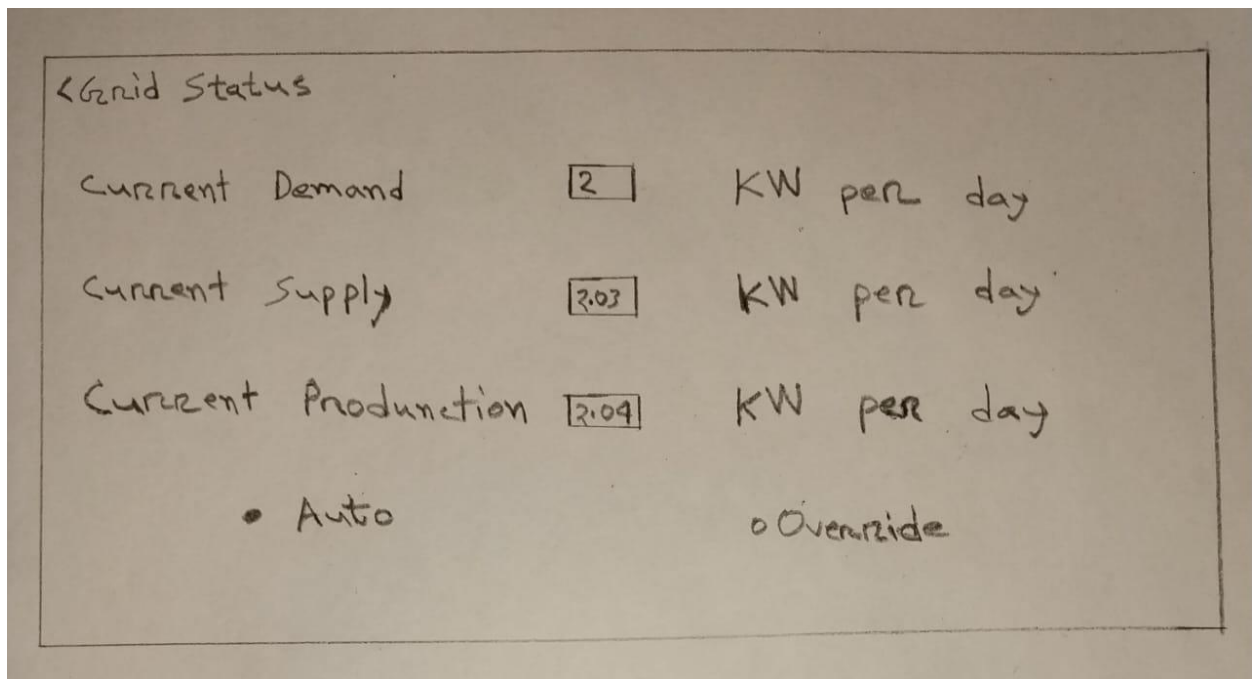 <Grid Status
Current Demand 2 KW per day
Current Supply 2.03 KW per day
Current Produnction 2.04 KW per day
• Auto o Override